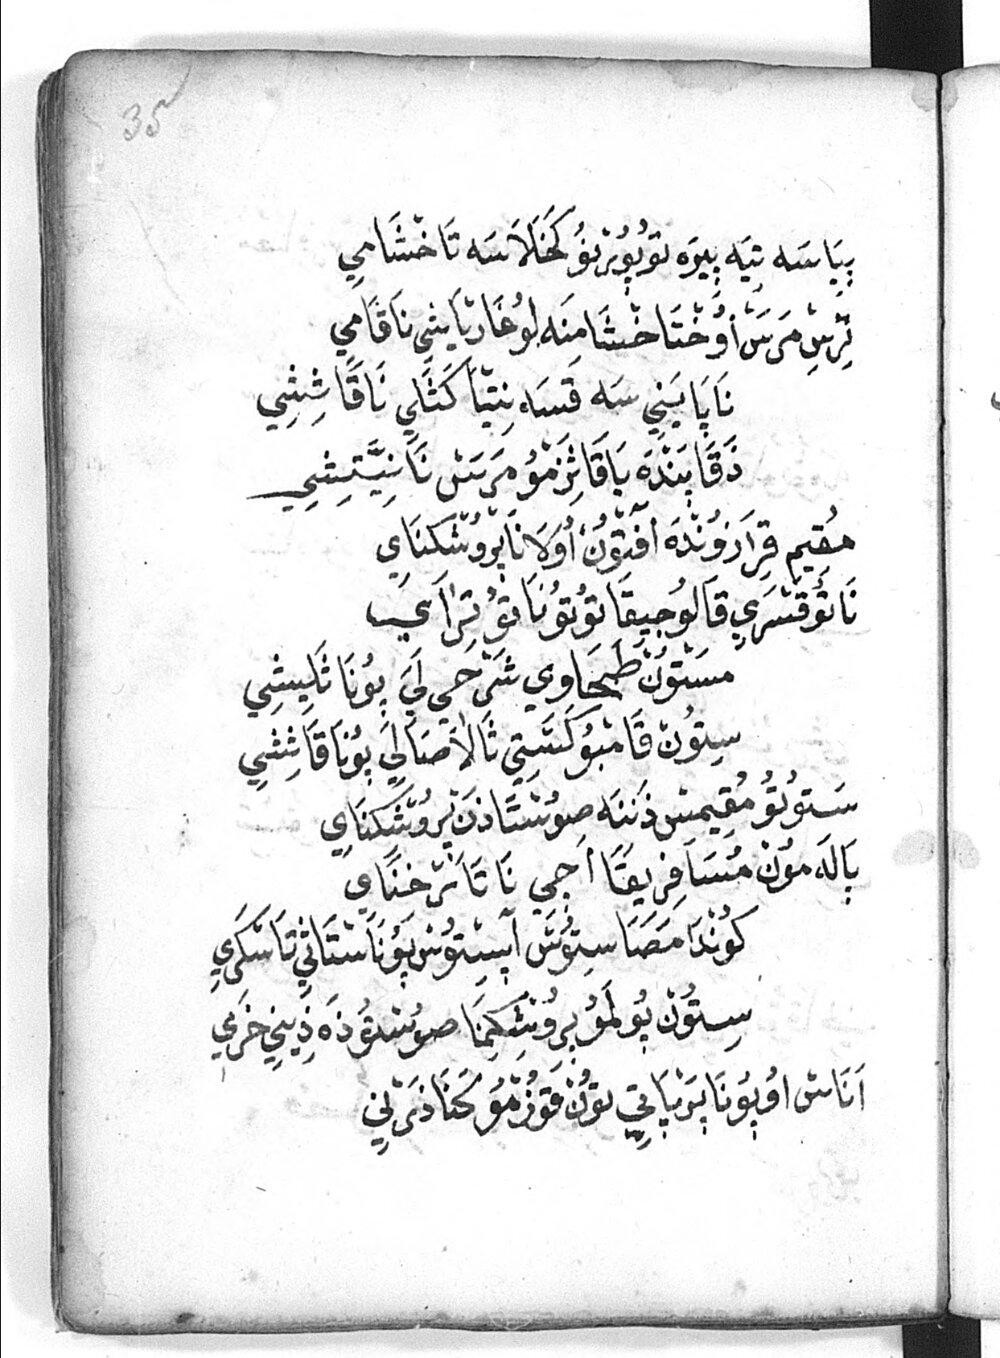 35
پِيَاسَه تِيَه پِيرَه توُپوُرْنوُ كَخَلَاسَه تَاخْشَامِي
تِرْسِ مَرَسَ اُوخْتَاخْشَامِنَه لوُغَارْيَاشِي نَاقَامِي
نَاپَايَنِي سَه قَسَه نِتْيَا كَثَلِي نَاقَاشِشِي
ذَقَاپَنْدَه يَاقَاثِرْمُو مَرَسَ نَانِيَّتِشِي
مُقِيمِ قِرَارْ وُنْدَه آفْتوُنْ اُولَا نَاپْروُشْكِنَايِ
نَاتوُقَسَرِي قَالوُجِيقَا توُتوُنَا توُ تِرَايَيِ
مسَتوُنْ طَحَاوِي شَرْحِي لَيَ پوُنَا ثَلِيشِي
سِتوُنْ قَامْبوُكَسَتِي ثَالَاصَالِيَ پوُنَاقَاشِشِي
سَتوُتوُ مُقِيمِسْ ذَنَنَه صوُسْتَاذَنْ پْروُشَكِنَايِ
بَالَه موُنْ مُسَافِرِيقَا اَجِي نَاتَاتْرخَنَايِ
كوُنْدَا مَصَاسِتوُسَ آپِسْتوُسْ پوُنَا سْتَاثِي تَاسْكَرِي
سِتوُنْ پوُلَموُ پروُشْكِمَا صوُسْتوُذَه ذِينِي خَرِي
اَنَاسْ اوُپوُنَا پَرْپَاتِي توُنْ قوُزْموُ كَنَاذَرْنِي